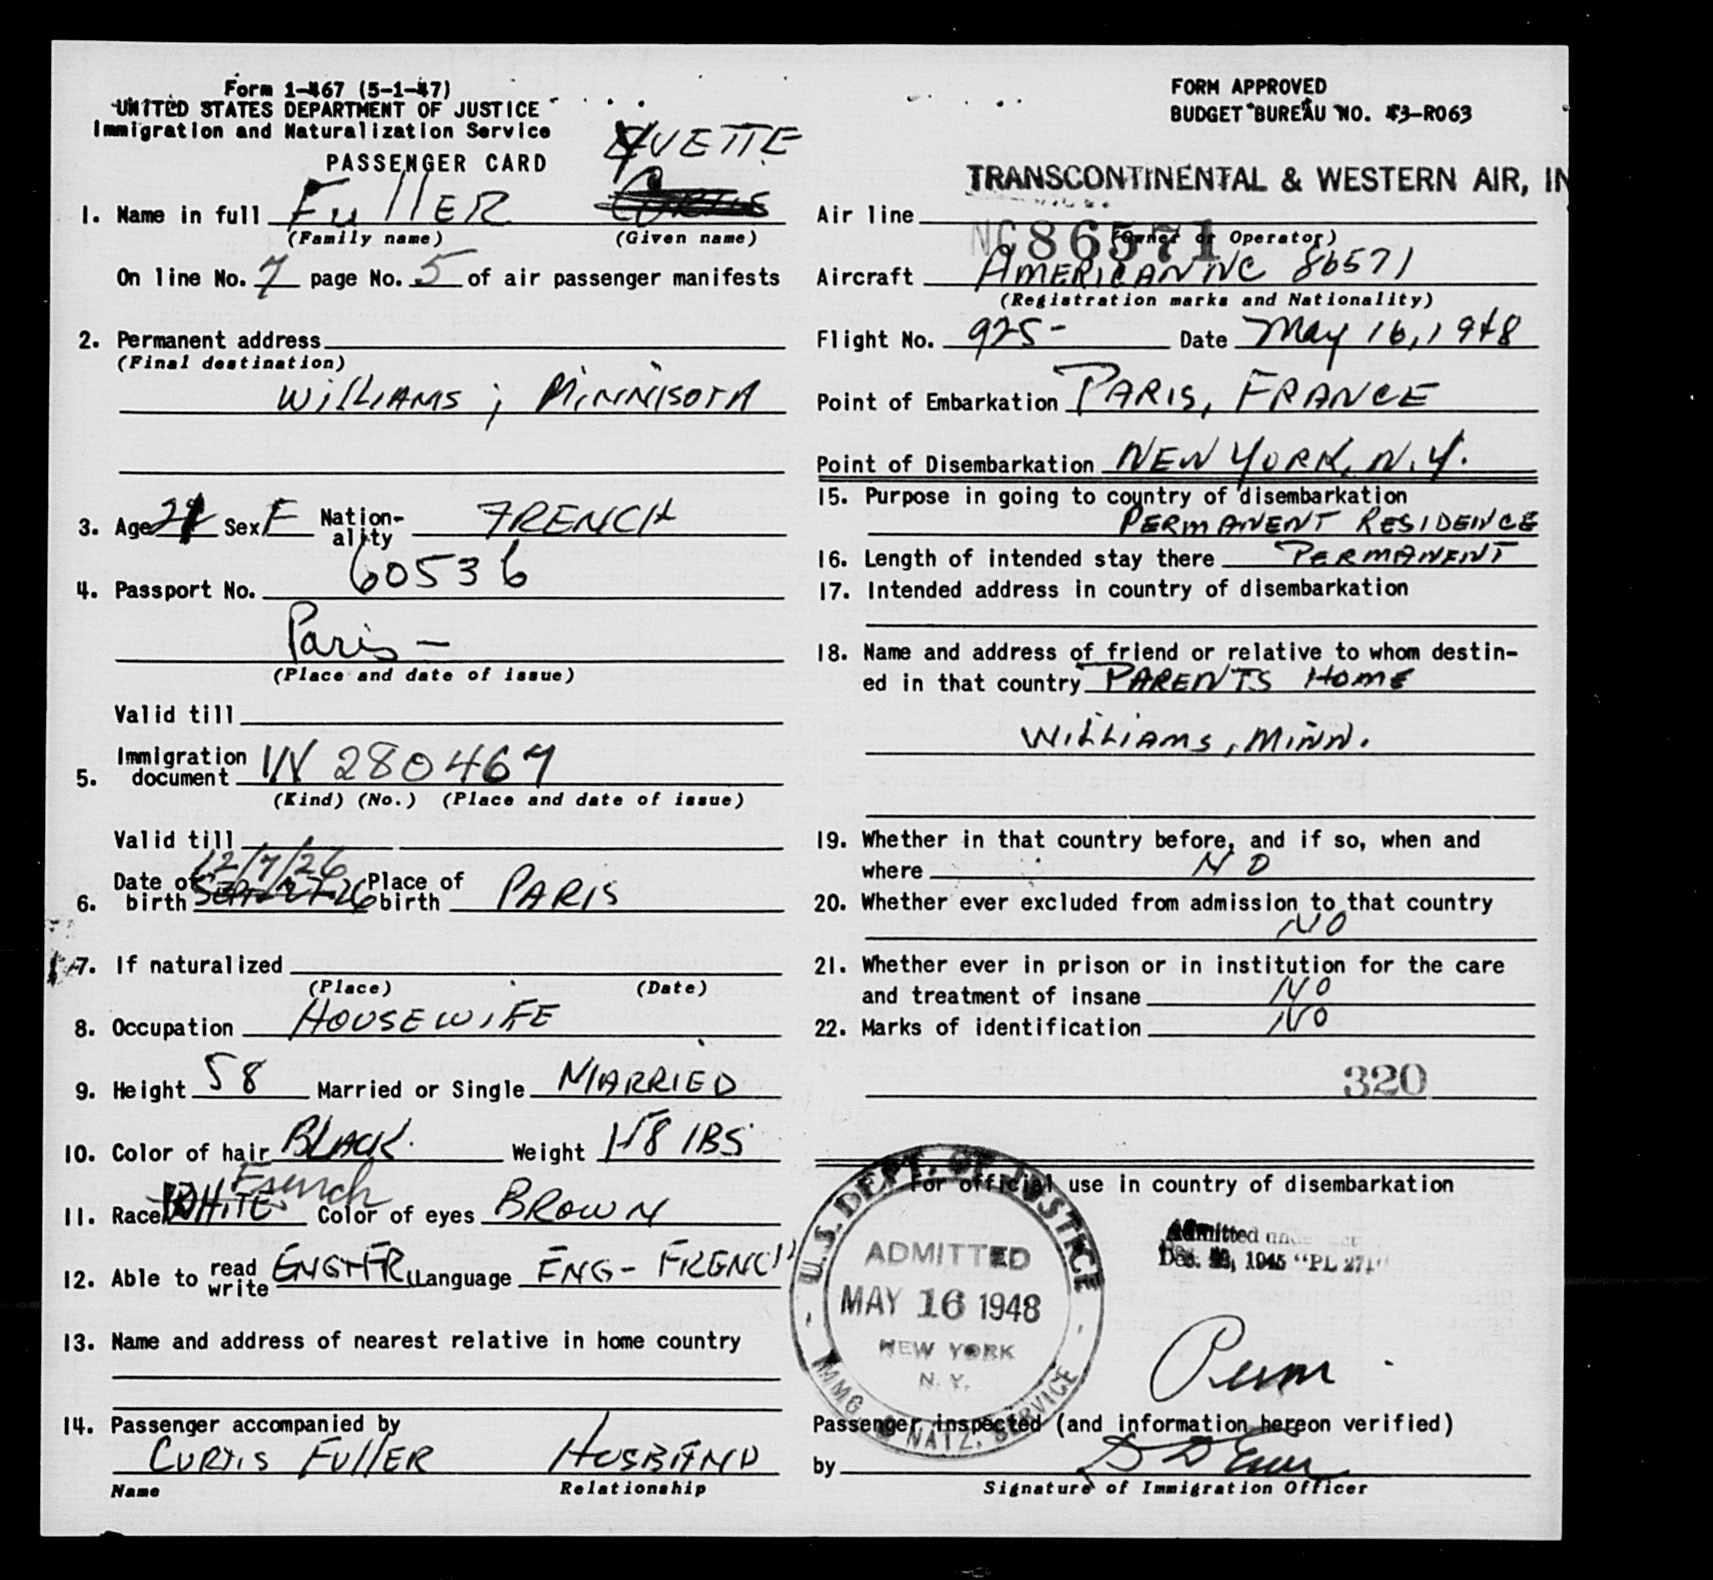 Form 1-467 (5-1-47)
UNITED STATES DEPARTMENT OF JUSTICE
Immigration and Naturalization Service
PASSENGER CARD
FORM APPROVED
BUDGET BUREAU NO. 43-R063
YVETTE
1. Name in full FullER CURTIS
(Family name) (Given name)
On line No. 7 page No. 5 of air passenger manifests
2. Permanent address
(Final destination)
WilliAMS ; MINNISOTA
3. Age 21 Sex F Nation-ality FRENCH
4. Passport No. 60536
Paris —
(Place and date of issue)
Valid till
5. Immigration document 280467
(Kind) (No.) (Place and date of issue)
Valid till
12/7/26
6. Date of birth Place of birth PARIS
7. If naturalized
(Place) (Date)
8. Occupation HOUSEWIFE
9. Height 58 Married or Single MARRIED
10. Color of hair BLACK. Weight 118 lBS
French
11. Race WHITE Color of eyes BROWN
12. Able to read write ENG+FR Language ENG- FRENCH
13. Name and address of nearest relative in home country
14. Passenger accompanied by
CURTIS FUllER HUSBAND
Name Relationship
TRANSCONTINENTAL & WESTERN AIR, IN
Air line
(Owner or Operator)
NC86571
Aircraft AMERICAN NC 86571
(Registration marks and Nationality)
Flight No. 925- Date May 16, 1948
Point of Embarkation PARIS, FRANCE
Point of Disembarkation NEW YORK, N.Y.
15. Purpose in going to country of disembarkation
PERMANENT RESIDENCE
16. Length of intended stay there PERMANENT
17. Intended address in country of disembarkation
18. Name and address of friend or relative to whom destin-
ed in that country PARENTS HOME
WilliAMS, MINN.
19. Whether in that country before, and if so, when and
where NO
20. Whether ever excluded from admission to that country
NO
21. Whether ever in prison or in institution for the care
and treatment of insane NO
22. Marks of identification NO
320
For official use in country of disembarkation
U.S. DEPT. OF JUSTICE
ADMITTED
MAY 16 1948
NEW YORK
N. Y.
IMMG & NATZ. SERVICE
Admitted under
Dec. 1945 "PL 271"
Perm
Passenger inspected (and information hereon verified)
by
Signature of Immigration Officer